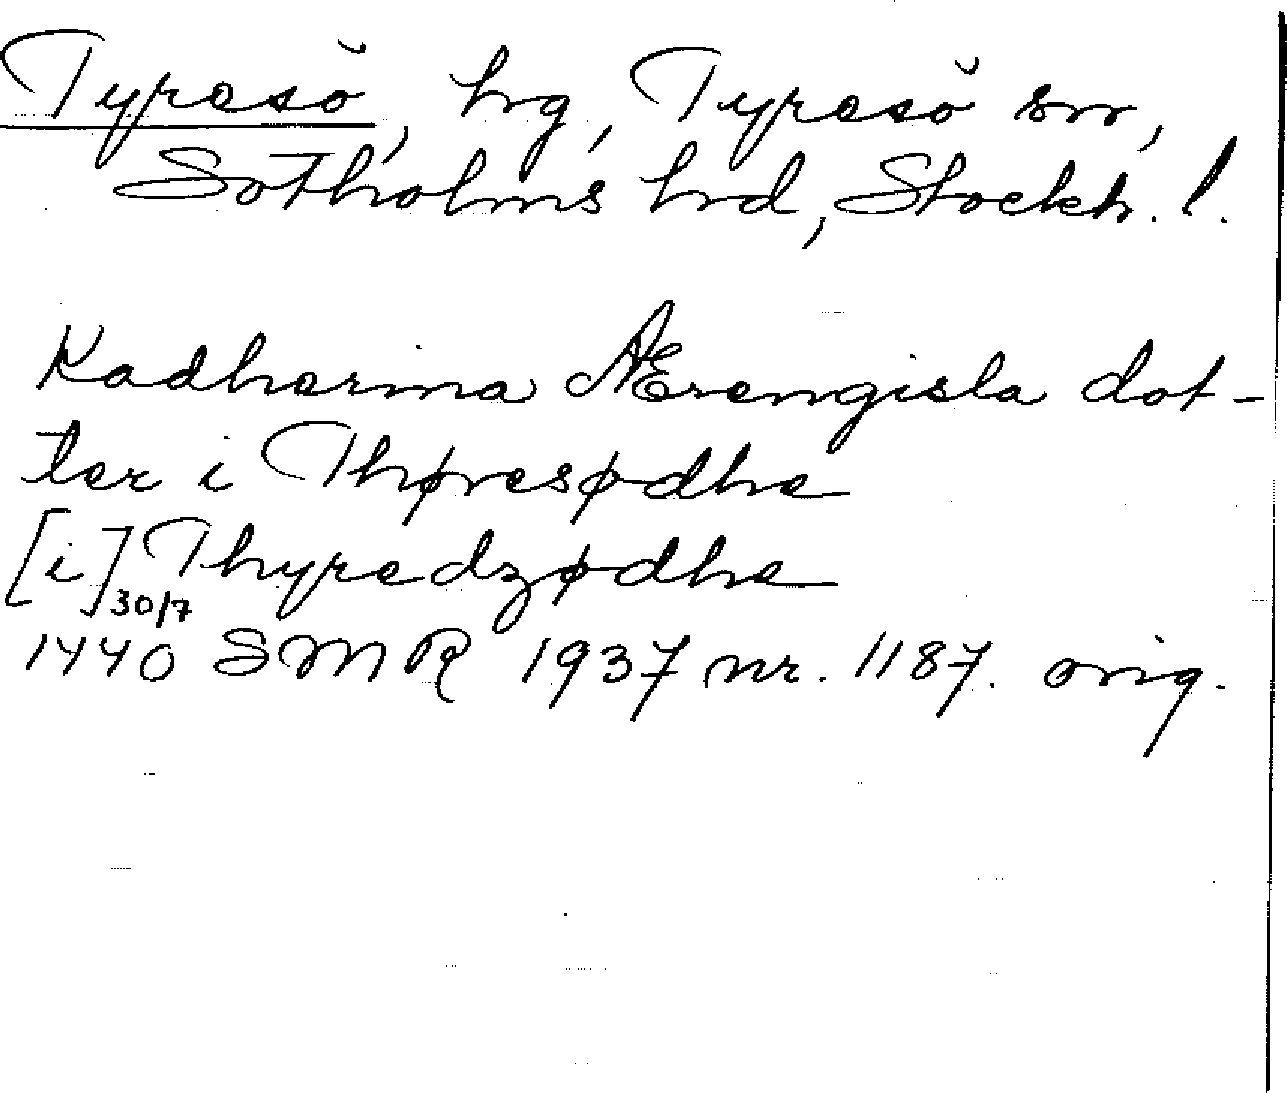 Tyresö, hrg, Tyresö sn,
Sotholms hrd, Stockh. l.
Kadherina Ærengisla dot-
ter i Thøresødhe
[i] Thyredzødhe
1440 30/7 SMR 1937 nr. 1187. orig.